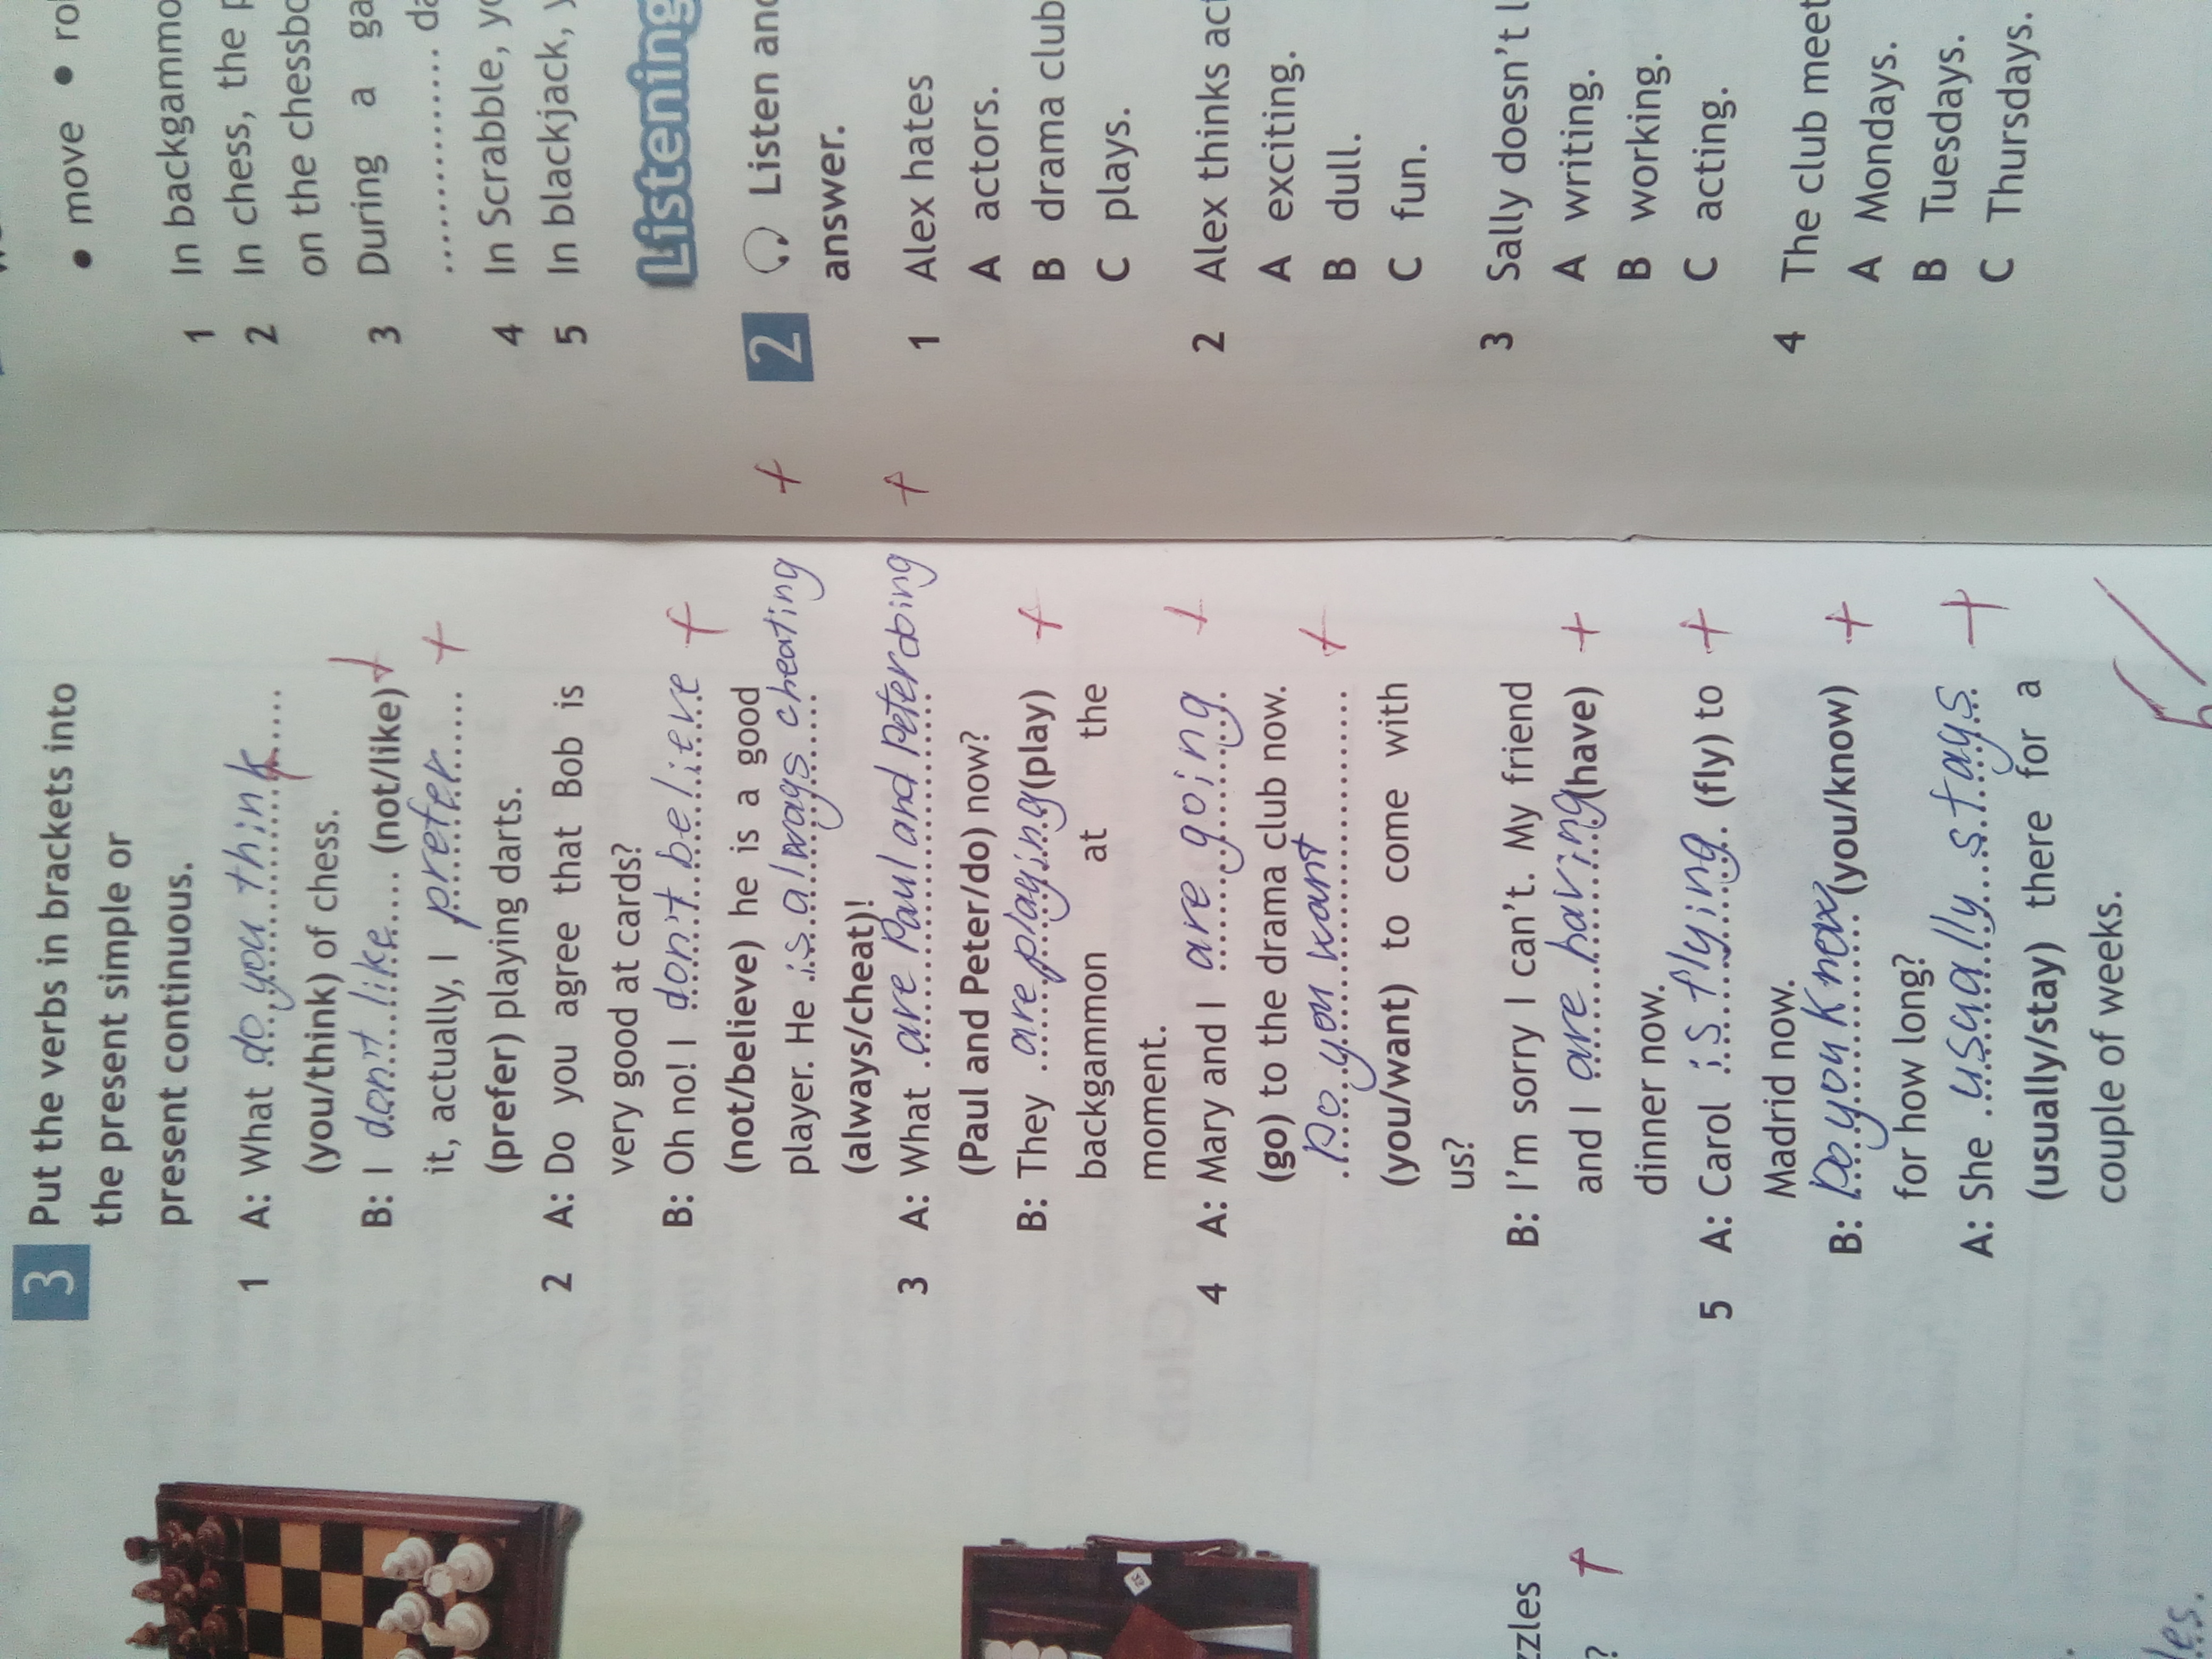 3 Put the verbs in brackets into
the present simple or
present continuous.
1 A: What do you think
(you/think) of chess.
B: I don't like (not/like)
it, actually, I prefer
(prefer) playing darts.
2 A: Do you agree that Bob is
very good at cards?
B: Oh no! I don't believe
(not/believe) he is a good
player. He is always cheating
(always/cheat)!
3 A: What are Paul and Peter doing
(Paul and Peter/do) now?
B: They are playing (play)
backgammon at the
moment.
4 A: Mary and I are going
(go) to the drama club now.
Do you want
(you/want) to come with
us?
B: I'm sorry I can't. My friend
and I are having (have)
dinner now.
5 A: Carol is flying (fly) to
Madrid now.
B: Do you know (you/know)
for how long?
A: She usually stays
(usually/stay) there for a
couple of weeks.
• move •
1 In
2 In chess, the
on the
3 During a
4 In Scrabble,
5 In blackjack,
Listening
2 Listen
answer.
1 Alex hates
A actors.
B drama club
C plays.
2 Alex thinks
A exciting.
B dull.
C fun.
3 Sally doesn't
A writing.
B working.
C acting.
4 The club
A Mondays.
B Tuesdays.
C Thursdays.